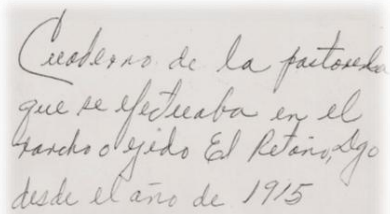 Cuaderno de la pastorela
que se efectuaba en el
rancho o ejido El Retoño, Dgo
desde el año de 1915